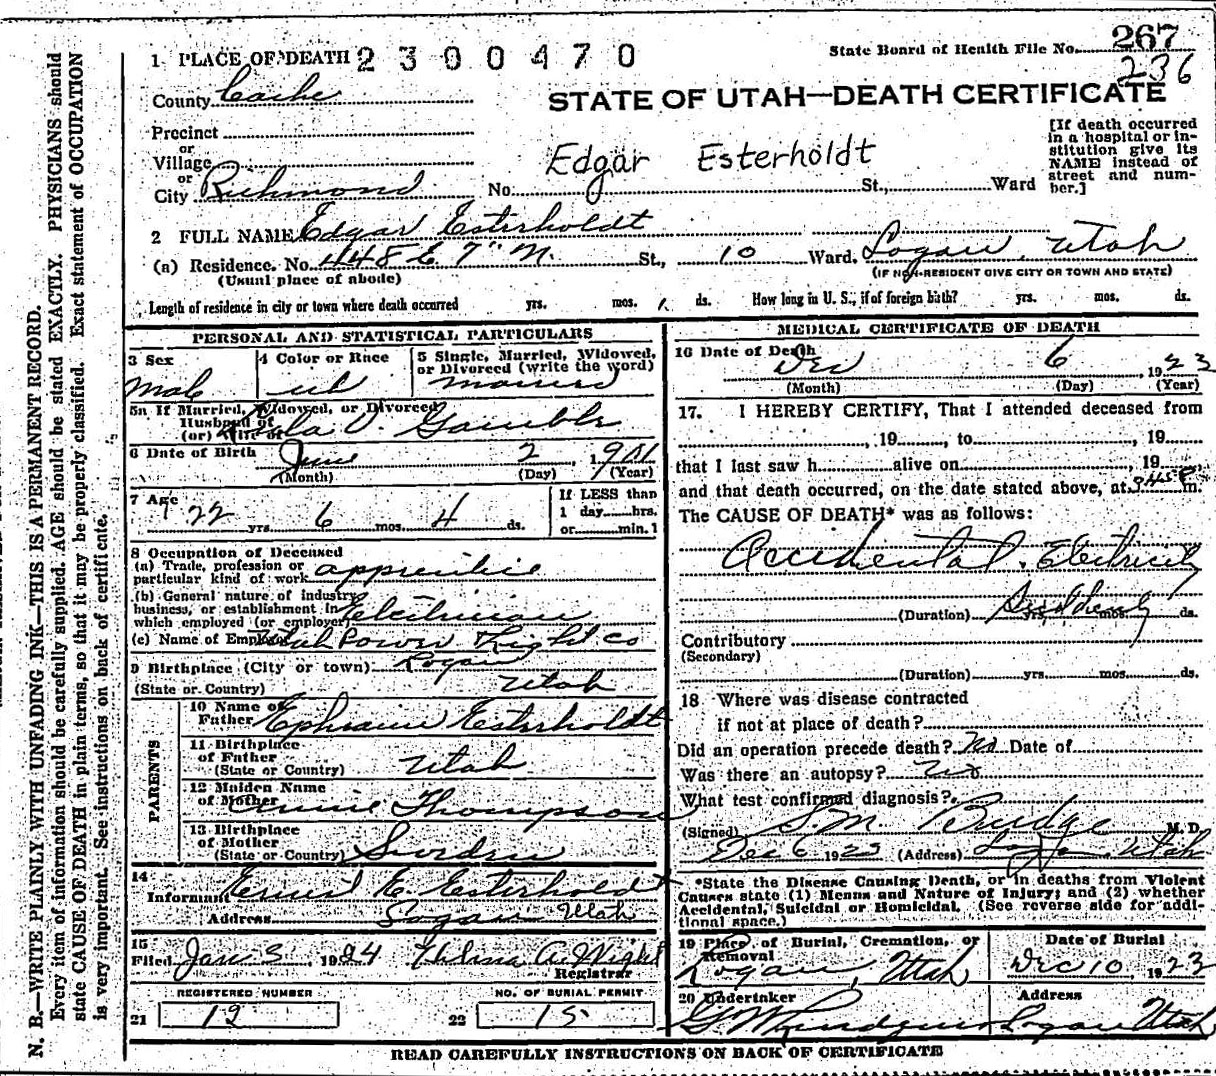 267
State Board of Health File No.
236
1 PLACE OF DEATH 2300470
County Cache
STATE OF UTAH—DEATH CERTIFICATE
Precinct
or
Village
or
City Richmond No. St., Ward
Edgar Esterholdt
[If death occurred in a hospital or institution give its NAME instead of street and number.]
2 FULL NAME Edgar Esterholdt
(a) Residence. No. 448 E. 7" N. St., 10 Ward, Logan, Utah
(Usual place of abode) (IF NON-RESIDENT GIVE CITY OR TOWN AND STATE)
Length of residence in city or town where death occurred yrs. mos. 1 ds. How long in U. S., if of foreign birth? yrs. mos. ds.
PERSONAL AND STATISTICAL PARTICULARS
3 Sex
Male
4 Color or Race
5 Single, Married, Widowed, or Divorced (write the word)
Married
5a If Married, Widowed, or Divorced
Husband of
(or) Wife of V. Gamble
6 Date of Birth June 2, 1901
(Month) (Day) (Year)
7 Age 22 yrs. 6 mos. 4 ds.
If LESS than
1 day......hrs.
or......min.
8 Occupation of Deceased
(a) Trade, profession or particular kind of work apprentice
(b) General nature of industry, business, or establishment in which employed (or employer) Electrician
(c) Name of Employer Utah Power Light Co
9 Birthplace (City or town) Logan
(State or Country) Utah
PARENTS
10 Name of Father Ephraim Esterholdt
11 Birthplace of Father
(State or Country) Utah
12 Maiden Name of Mother Annie Thompson
13 Birthplace of Mother
(State or Country) Sweden
14
Informant Ernest E. Esterholdt
Address Logan Utah
15
Filed Jan 3 1924
Registrar
REGISTERED NUMBER
21 12
NO. OF BURIAL PERMIT
22 15
MEDICAL CERTIFICATE OF DEATH
16 Date of Death Dec 6, 1923
(Month) (Day) (Year)
17. I HEREBY CERTIFY, That I attended deceased from
, 19......, to , 19
that I last saw h alive on , 19
and that death occurred, on the date stated above, at 3 45 P m.
The CAUSE OF DEATH* was as follows:
Accidental. Electricity
Suddenly
(Duration) yrs. mos. ds.
Contributory
(Secondary)
(Duration) yrs. mos. ds.
18 Where was disease contracted
if not at place of death?
Did an operation precede death? No Date of
Was there an autopsy? No
What test confirmed diagnosis?
(Signed) S M Budge M. D.
Dec 6 1923 (Address) Logan, Utah
*State the Disease Causing Death, or in deaths from Violent Causes state (1) Means and Nature of Injury; and (2) whether Accidental, Suicidal or Homicidal. (See reverse side for additional space.)
19 Place of Burial, Cremation, or Removal
Logan, Utah
Date of Burial
Dec 10, 1923
20 Undertaker
Address
Logan Utah
READ CAREFULLY INSTRUCTIONS ON BACK OF CERTIFICATE
N. B.—WRITE PLAINLY WITH UNFADING INK—THIS IS A PERMANENT RECORD.
Every item of information should be carefully supplied. AGE should be stated EXACTLY. PHYSICIANS should
state CAUSE OF DEATH in plain terms, so that it may be properly classified. Exact statement of OCCUPATION
is very important. See instructions on back of certificate.